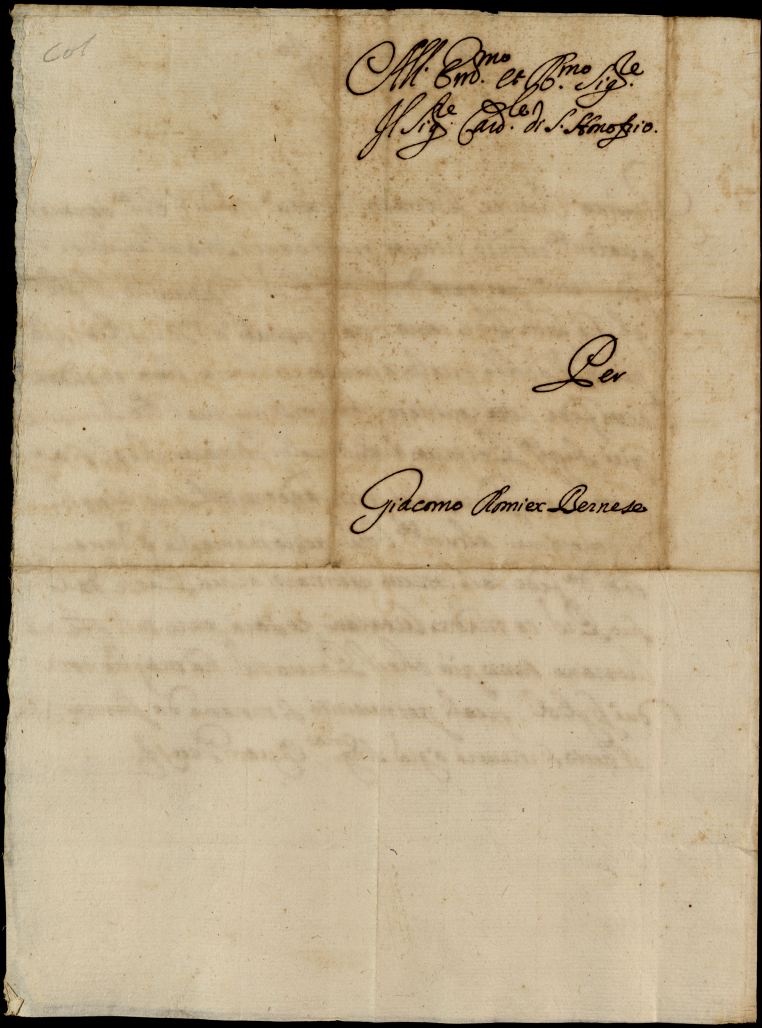 Col
All. Em.mo et R.mo Sig.re
Il Sig.re Card.le di S. Honofrio.
Per
Giacomo Romiex Bernese